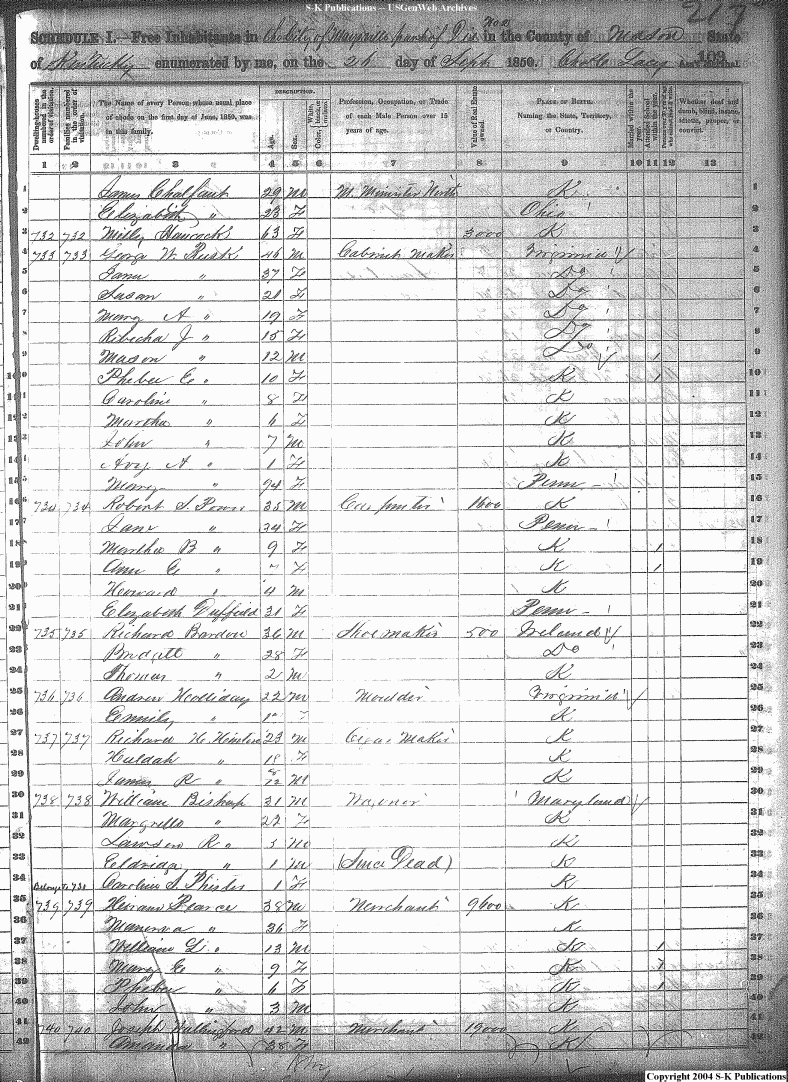 S-K Publications -- USGenWeb Archives
217
SCHEDULE I.—Free Inhabitants in the City of Maysville part of Dis No 2 in the County of Mason State
of Kentucky enumerated by me, on the 26 day of Sept 1850. Ass't Marshal 109
Dwelling-houses numbered in the order of visitation. Families numbered in the order of visitation. The Name of every Person whose usual place of abode on the first day of June, 1850, was in this family. DESCRIPTION. Age. Sex. Color, White, black, or mulatto. Profession, Occupation, or Trade of each Male Person over 15 years of age. Value of Real Estate owned. PLACE OF BIRTH. Naming the State, Territory, or Country. Married within the year. Attended School within the year. Whether deaf and dumb, blind, insane, idiotic, pauper, or convict.
1 2 3 4 5 6 7 8 9 10 11 12 13
1 James Chalfant 29 M M. Minister North K 1
2 Elizabeth " 23 F Ohio 2
3 732 732 Milly Hancock 63 F 3000 K 3
4 733 733 George W. Rusk 46 M Cabinet Maker Virginia 4
5 Jane " 37 F Do 5
6 Susan " 21 F Do 6
7 Mary A " 19 F Do 7
8 Rebecha J " 15 F Do 8
9 Mason " 12 M Do 1 9
10 Pheber E " 10 F K 1 10
11 Caroline " 8 F K 11
12 Martha " 6 F K 12
13 John " 7 M K 13
14 A " 1 F K 14
15 Mary " 74 F Penn 15
16 734 734 Robert S. Power 35 M Carpenter 1600 K 16
17 Jane " 34 F Penn 17
18 Martha B " 9 F K 1 18
19 Ann E " 7 F K 1 19
20 Howard " 4 M K 20
21 Elizabeth Duffield 31 F Penn 21
22 735 735 Richard Barden 36 M Shoe maker 500 Ireland 22
23 Bridgett " 28 F Do 23
24 Thomas " 2 M K 24
25 736 736 Andrew Holliday 22 M Moulder Virginia 25
26 Emmily " F K 26
27 737 737 Richard H. 23 M Cigar Maker K 27
28 Huldah " 18 F K 28
29 James R " 8/12 M K 29
30 738 738 William Bishop 31 M Maryland 30
31 Margrette " 22 F K 31
32 Lawson R " 3 M K 32
33 Eldridge " 1 M (Since Dead) K 33
34 Belongs to 731 Caroline S. Phister 1 F K 34
35 739 739 Hiram Pearce 38 M Merchant 9600 K 35
36 Manerva " 36 F K 36
37 William L. " 13 M K 1 37
38 Mary E " 9 F K 1 38
39 Pheber " 6 F K 1 39
40 John " 3 M K 40
41 740 740 Joseph Wallingford 42 M Merchant 19000 K 41
42 Amanda " 38 F K 42
Copyright 2004 S-K Publications